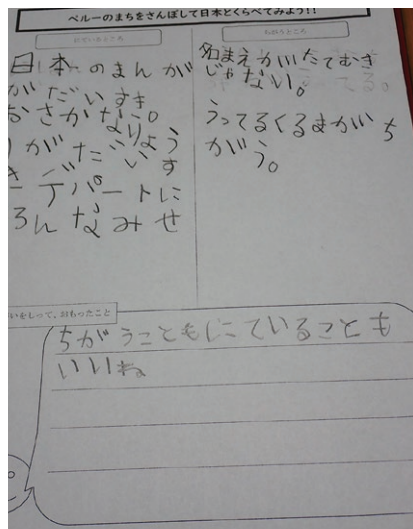 ペルーのまちをさんぽして日本とくらべてみよう!!
にているところ
日本のまんが
がだいすき
おさかなりょう
りがだいす
き デパートに
ろんなみせ
ちがうところ
名まえがたてむき
じゃない。
うってるくるまがち
がう。
いをしって、おもったこと
ちがうこともにていることも
いいね